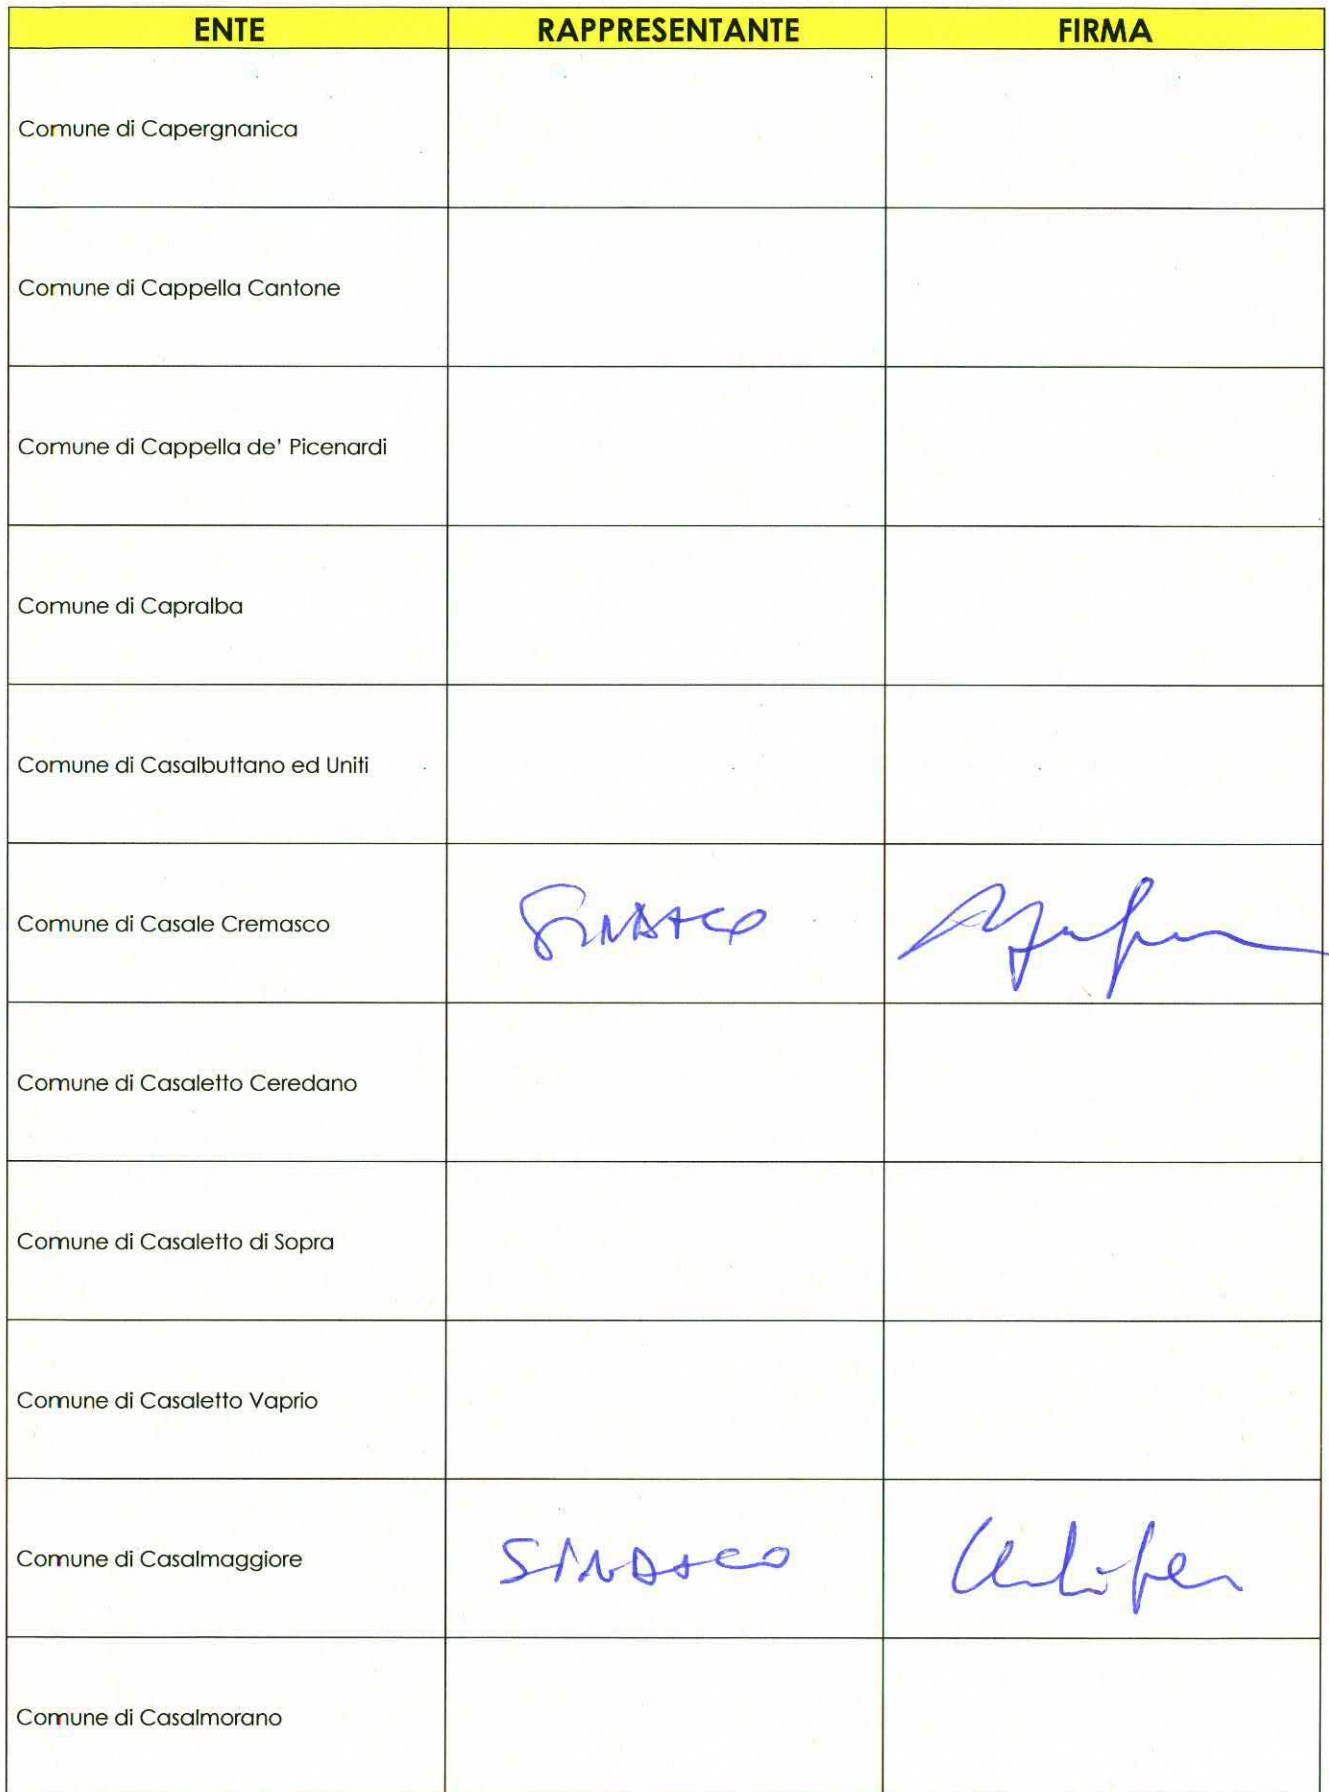 ENTE RAPPRESENTANTE FIRMA
Comune di Capergnanica
Comune di Cappella Cantone
Comune di Cappella de' Picenardi
Comune di Capralba
Comune di Casalbuttano ed Uniti
Comune di Casale Cremasco SINDACO
Comune di Casaletto Ceredano
Comune di Casaletto di Sopra
Comune di Casaletto Vaprio
Comune di Casalmaggiore SINDACO
Comune di Casalmorano